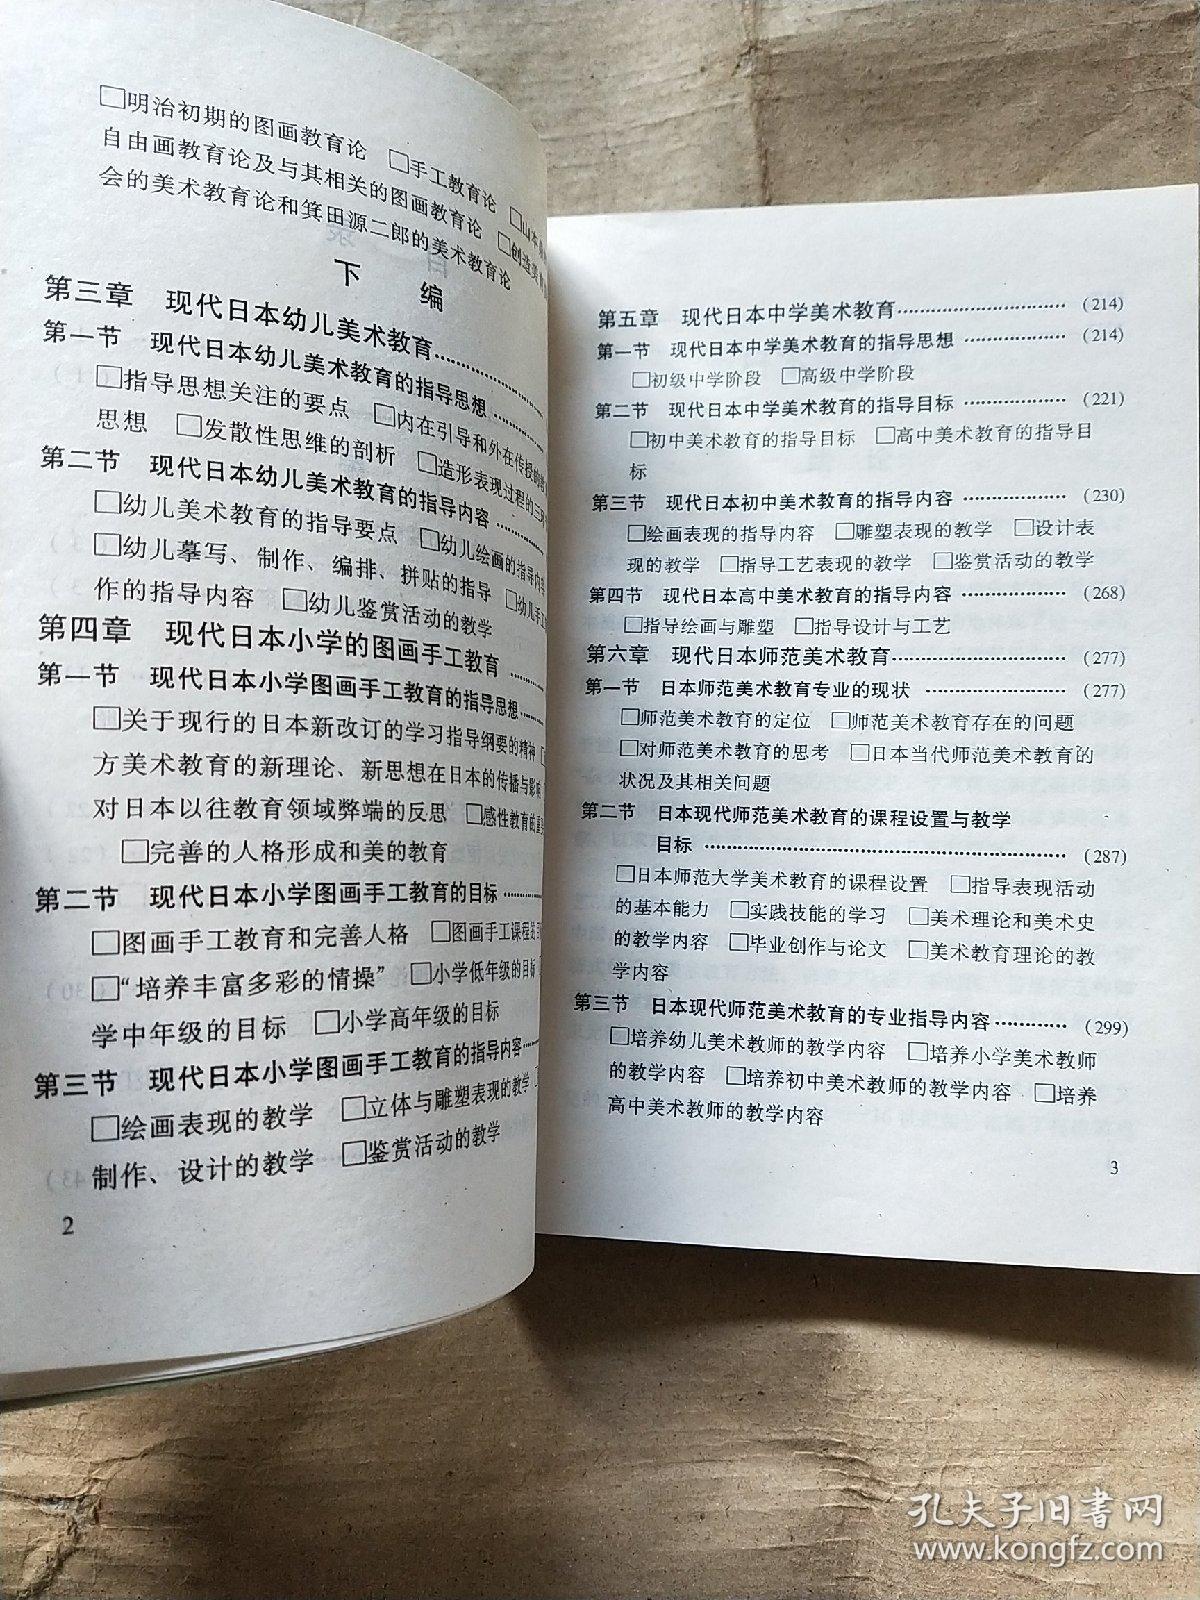 □明治初期的图画教育论 □手工教育论 □山本
自由画教育论及与其相关的图画教育论 □创造美
会的美术教育论和箕田源二郎的美术教育论
下 编
第三章 现代日本幼儿美术教育…………
第一节 现代日本幼儿美术教育的指导思想…………
□指导思想关注的要点 □内在引导和外在传授的
思想 □发散性思维的剖析 □造形表现过程的三
第二节 现代日本幼儿美术教育的指导内容…………
□幼儿美术教育的指导要点 □幼儿绘画的指导内容
□幼儿摹写、制作、编排、拼贴的指导 □幼儿手工
作的指导内容 □幼儿鉴赏活动的教学
第四章 现代日本小学的图画手工教育…………
第一节 现代日本小学图画手工教育的指导思想…………
□关于现行的日本新改订的学习指导纲要的精神
方美术教育的新理论、新思想在日本的传播与影响
对日本以往教育领域弊端的反思 □感性教育的重
□完善的人格形成和美的教育
第二节 现代日本小学图画手工教育的目标…………
□图画手工教育和完善人格 □图画手工课程
□“培养丰富多彩的情操” □小学低年级的目标
学中年级的目标 □小学高年级的目标
第三节 现代日本小学图画手工教育的指导内容…………
□绘画表现的教学 □立体与雕塑表现的教学
制作、设计的教学 □鉴赏活动的教学
2
第五章 现代日本中学美术教育………………… (214)
第一节 现代日本中学美术教育的指导思想………… (214)
□初级中学阶段 □高级中学阶段
第二节 现代日本中学美术教育的指导目标………… (221)
□初中美术教育的指导目标 □高中美术教育的指导目
标
第三节 现代日本初中美术教育的指导内容………… (230)
□绘画表现的指导内容 □雕塑表现的教学 □设计表
现的教学 □指导工艺表现的教学 □鉴赏活动的教学
第四节 现代日本高中美术教育的指导内容………… (268)
□指导绘画与雕塑 □指导设计与工艺
第六章 现代日本师范美术教育………………… (277)
第一节 日本师范美术教育专业的现状…………… (277)
□师范美术教育的定位 □师范美术教育存在的问题
□对师范美术教育的思考 □日本当代师范美术教育的
状况及其相关问题
第二节 日本现代师范美术教育的课程设置与教学
目标………………………………… (287)
□日本师范大学美术教育的课程设置 □指导表现活动
的基本能力 □实践技能的学习 □美术理论和美术史
的教学内容 □毕业创作与论文 □美术教育理论的教
学内容
第三节 日本现代师范美术教育的专业指导内容………… (299)
□培养幼儿美术教师的教学内容 □培养小学美术教师
的教学内容 □培养初中美术教师的教学内容 □培养
高中美术教师的教学内容
3
孔夫子旧书网
www.kongfz.com